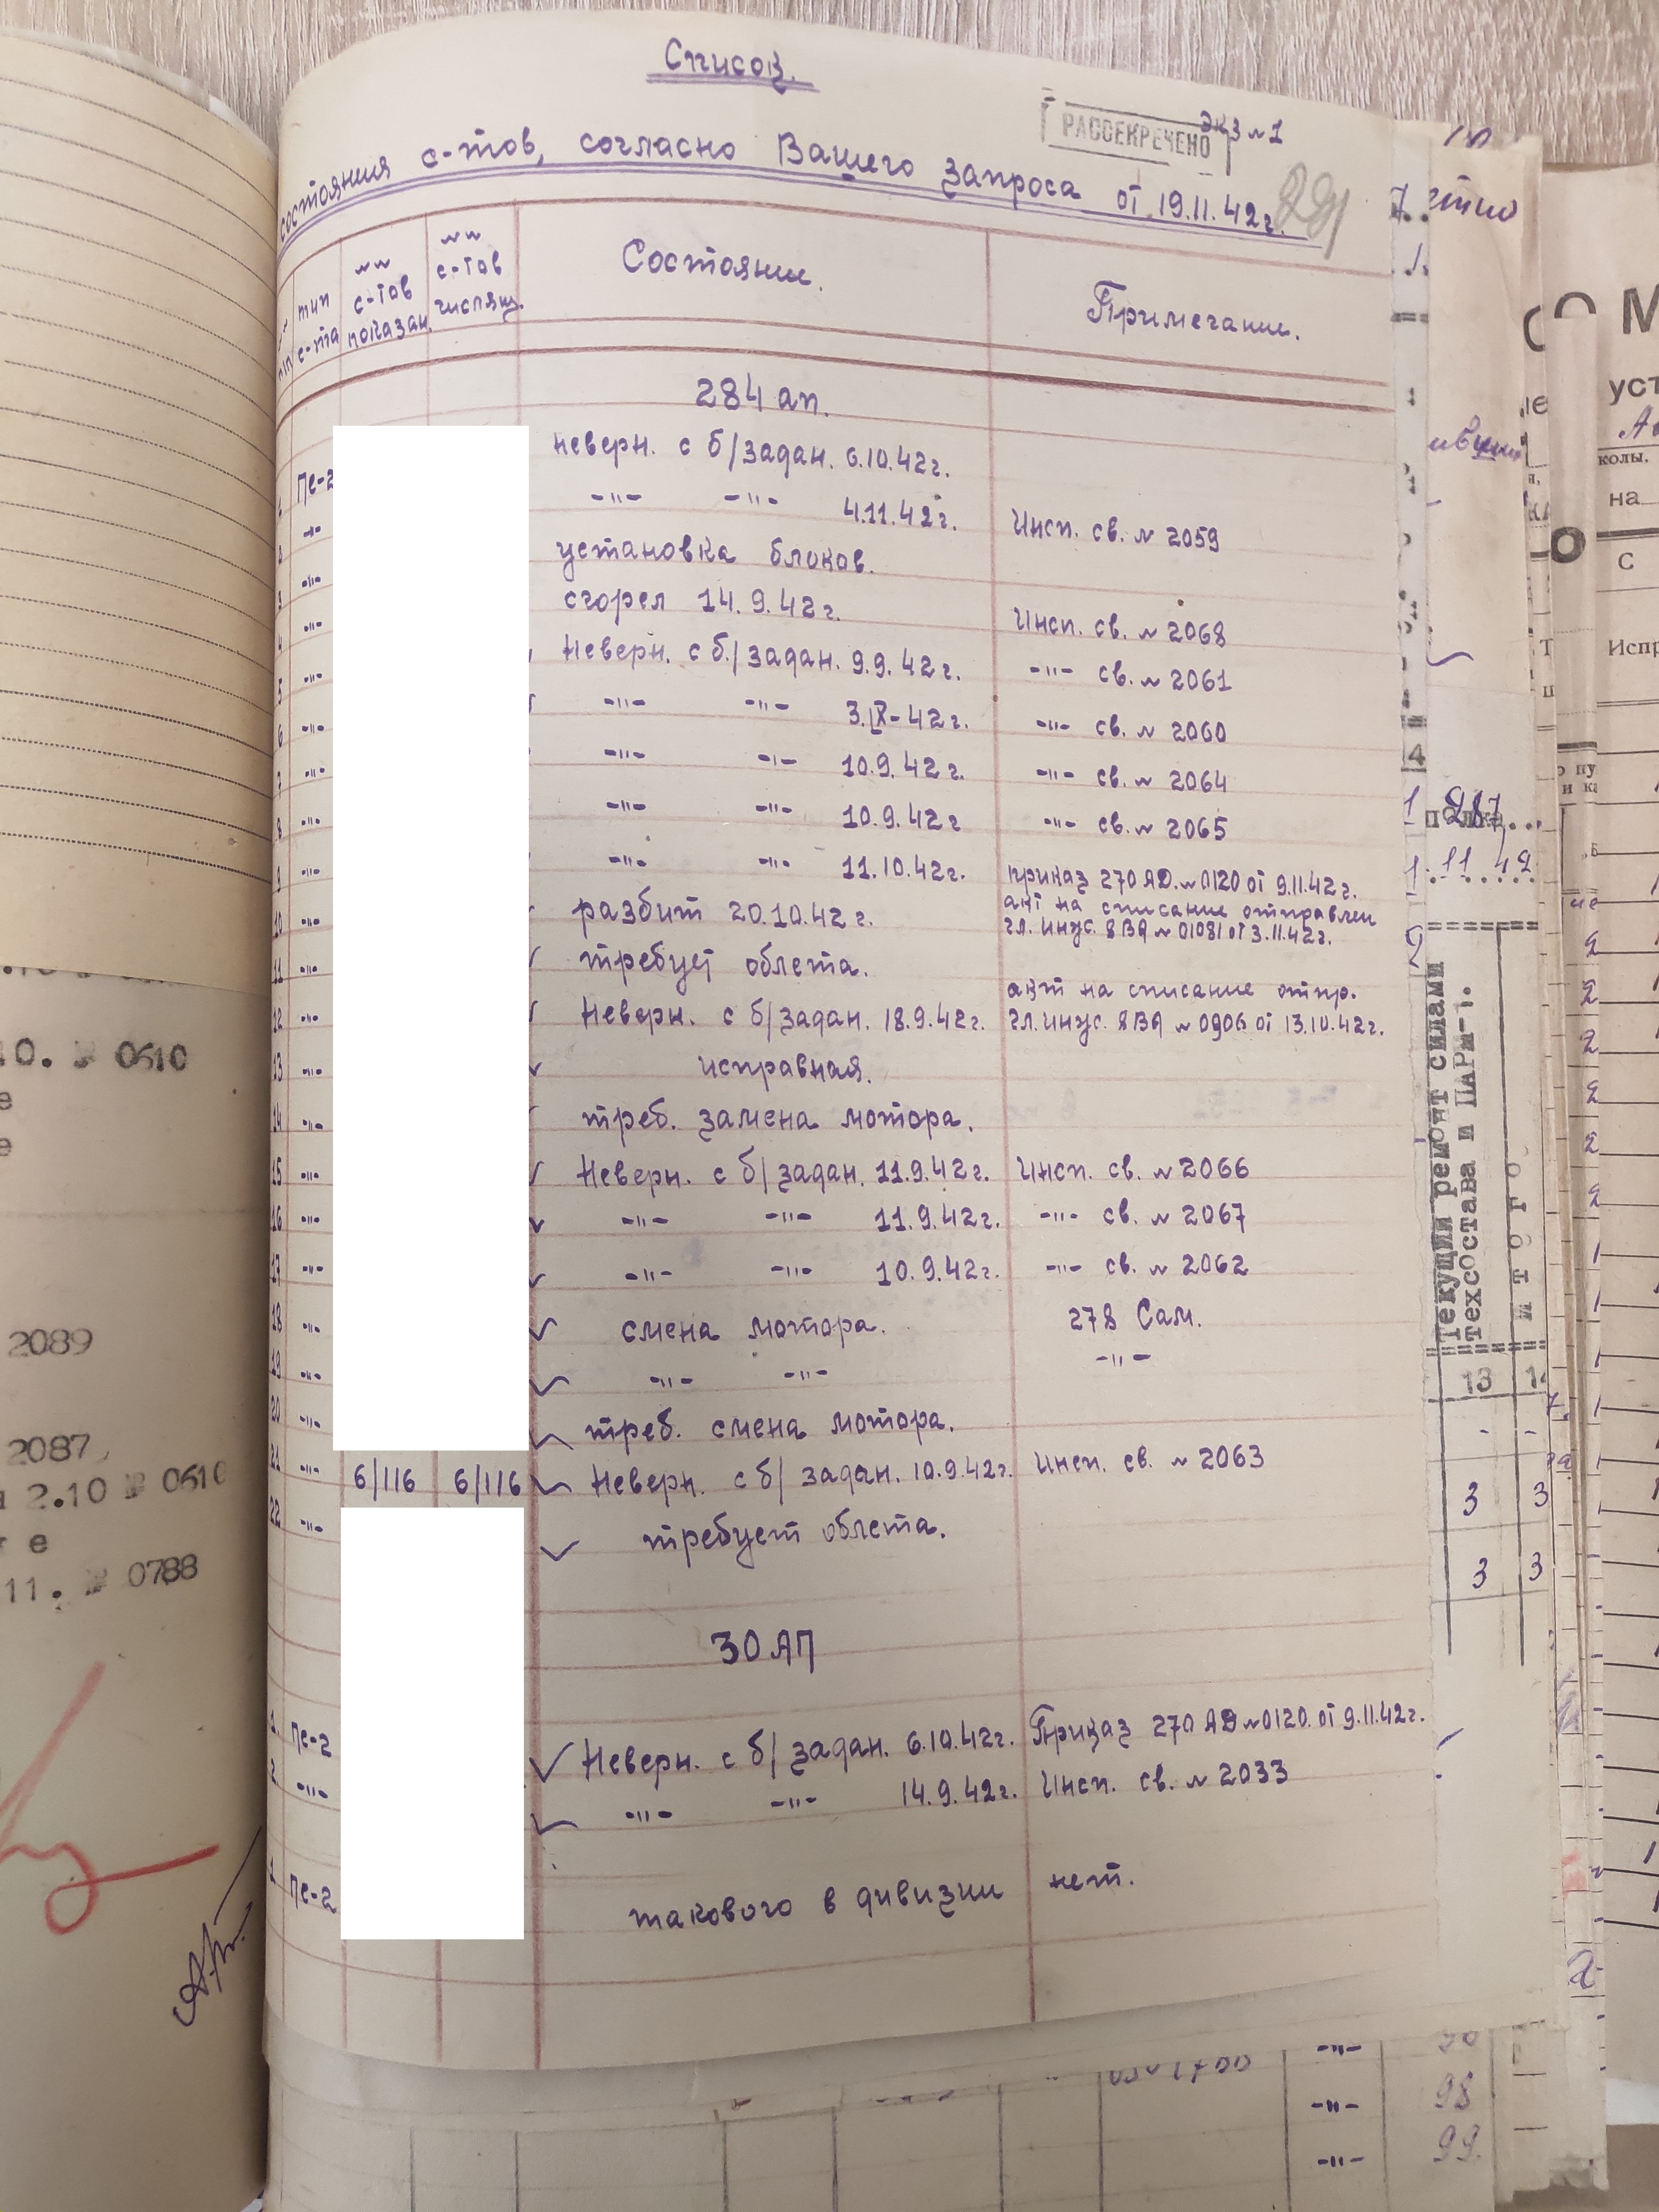 Список.
РАССЕКРЕЧЕНО
Экз №1
состояния с-тов, согласно Вашего запроса от 19.11.42г.
№ п/п
тип с-та
№№ с-тов показан.
№№ с-тов числящ.
Состояние.
Примечание.
284 ап.
1 Пе-2 неверн. с б/задан. 6.10.42г.
2 -"- -"- -"- 4.11.42г. Инсп. св. № 2059
3 -"- установка блоков.
4 -"- сгорел 14.9.42г. Инсп. св. № 2068
5 -"- Неверн. с б./задан. 9.9.42г. -"- св. № 2061
6 -"- -"- -"- 3.IX-42г. -"- св. № 2060
7 -"- -"- -"- 10.9.42г. -"- св. № 2064
8 -"- -"- -"- 10.9.42г -"- св. № 2065
9 -"- -"- -"- 11.10.42г. приказ 270 АД. №0120 от 9.11.42г.
10 -"- разбит 20.10.42г. акт на списание отправлен
гл. инж. 8ВА №01081 от 3.11.42г.
11 -"- требует облета.
12 -"- Неверн. с б/задан. 18.9.42г. акт на списание отпр.
гл. инж. 8ВА №0906 от 13.10.42г.
13 -"- исправная.
14 -"- треб. замена мотора.
15 -"- Неверн. с б/задан. 11.9.42г. Инсп. св. № 2066
16 -"- -"- -"- 11.9.42г. -"- св. № 2067
17 -"- -"- -"- 10.9.42г. -"- св. № 2062
18 -"- смена мотора. 278 Сам.
19 -"- -"- -"- -"-
20 -"- треб. смена мотора.
21 -"- 6/116 6/116 Неверн. с б/задан. 10.9.42г. Инсп. св. № 2063
22 -"- требует облета.
30 АП
1. Пе-2 Неверн. с б/задан. 6.10.42г. Приказ 270 АД №0120. от 9.11.42г.
2. -"- -"- -"- 14.9.42г. Инсп. св. № 2033
1 Пе-2 такового в дивизии нет.
0610
2089
2087
2.10 № 0610
11. № 0788
полка
11 42
Текущий ремонт силами
техсостава и ПАРМ-1.
ИТОГО
13
3 3
3 3
уст
колы,
на
С
Испр
98
99.